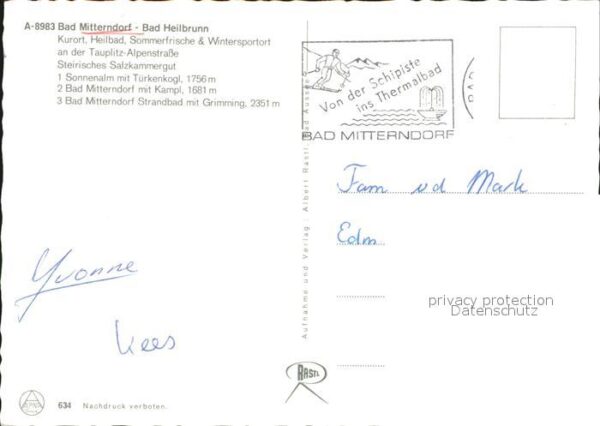 A-8983 Bad Mitterndorf - Bad Heilbrunn
Kurort, Heilbad, Sommerfrische & Wintersportort
an der Tauplitz-Alpenstraße
Steirisches Salzkammergut
1 Sonnenalm mit Türkenkogl, 1756 m
2 Bad Mitterndorf mit Kampl, 1681 m
3 Bad Mitterndorf Strandbad mit Grimming, 2351 m
Von der Schipiste
ins Thermalbad
BAD MITTERNDORF
BAD
Aufnahme und Verlag: Albert Rastl, Bad Aussee
Fam vd Mark
Edm
Yvonne
Kees
privacy protection
Datenschutz
RASTL
634 Nachdruck verboten.